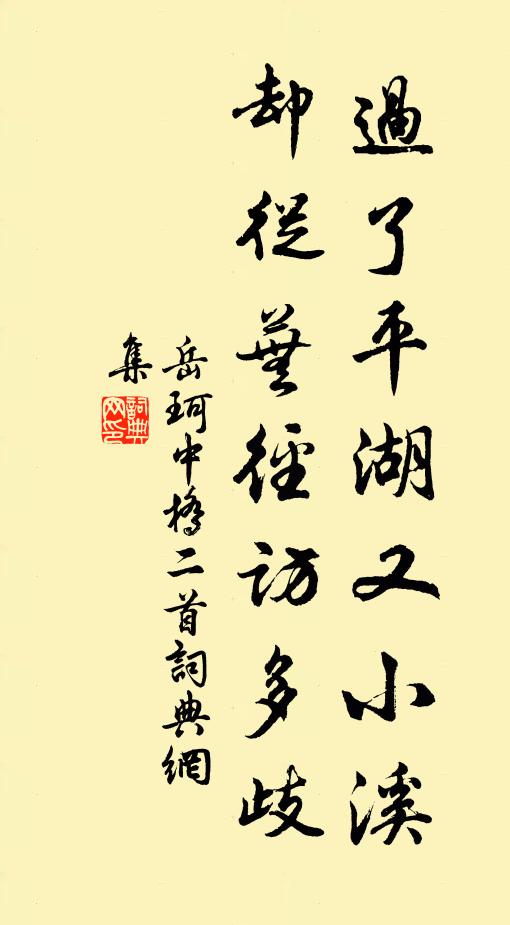 過了平湖又小溪
却從蕪徑訪多歧
岳珂中橋二首詞典網
集
詞典
网印